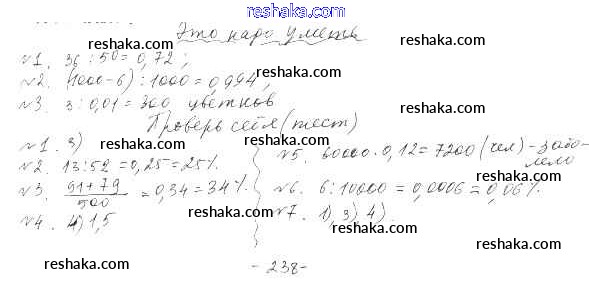 reshaka.com
Это надо уметь
№1. 36 : 50 = 0,72;
№2. (1000-6) : 1000 = 0,994;
№3. 3 : 0,01 = 300 цветков
Проверь себя (тест)
№1. 3)
№2. 13:52 = 0,25 = 25%.
№3. 91+79 / 500 = 0,34 = 34%.
№4. 4) 1,5
№5. 60000 · 0,12 = 7200 (чел) - забо-
лело
№6. 6:10000 = 0,0006 = 0,06%.
№7. 1), 3), 4).
- 238 -
reshaka.com
reshaka.com
reshaka.com
reshaka.com
reshaka.com
reshaka.com
reshaka.com
reshaka.com
reshaka.com
reshaka.com
reshaka.com